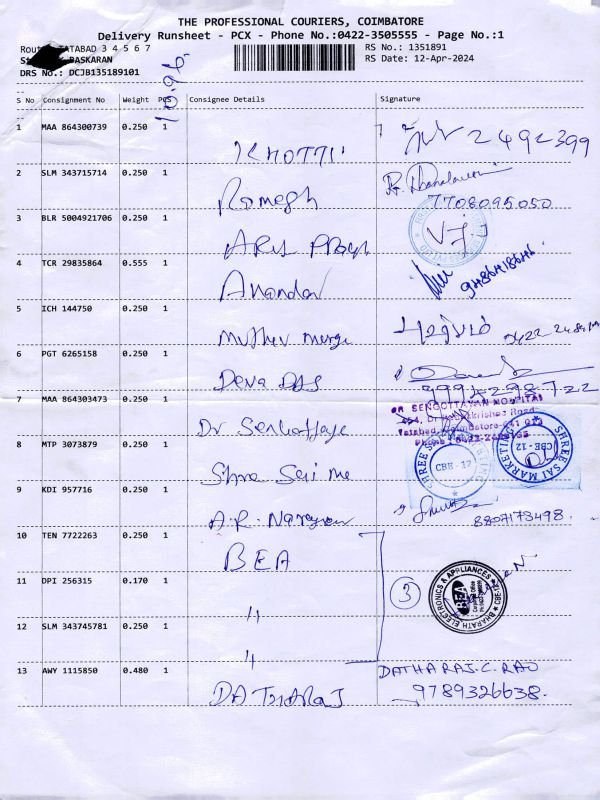 THE PROFESSIONAL COURIERS, COIMBATORE
Delivery Runsheet - PCX - Phone No.:0422-3505555 - Page No.:1
TATABAD 3 4 5 6 7
RS No.: 1351891
BASKARAN
RS Date: 12-Apr-2024
DRS No.: DCJB135189101
S No Consignment No Weight PCS Consignee Details Signature
1 MAA 864300739 0.250 1
2492399
2 SLM 343715714 0.250 1 Romesh
7708095050
3 BLR 5004921706 0.250 1
V.J.J
4 TCR 29835864 0.555 1 Anandan
5 ICH 144750 0.250 1
0422
6 PGT 6265158 0.250 1 Deva DSS
7 MAA 864303473 0.250 1
DR SENGOTTAYAN HOSPITAL
Tatabad, Coimbatore-641 012
8 MTP 3073879 0.250 1
SHREE SAI MARKETING CBE-12
SHREE SAI MARKETING CBE-12
9 KDI 957716 0.250 1 A.R. Narayan
8807173498.
10 TEN 7722263 0.250 1 BEA
11 DPI 256315 0.170 1 "
3
BHARATH ELECTRONICS & APPLIANCES
BEA
12 SLM 343745781 0.250 1 "
13 AWY 1115850 0.480 1 DATHARAJ
DATHARAJ.C.RAO
9789326638.